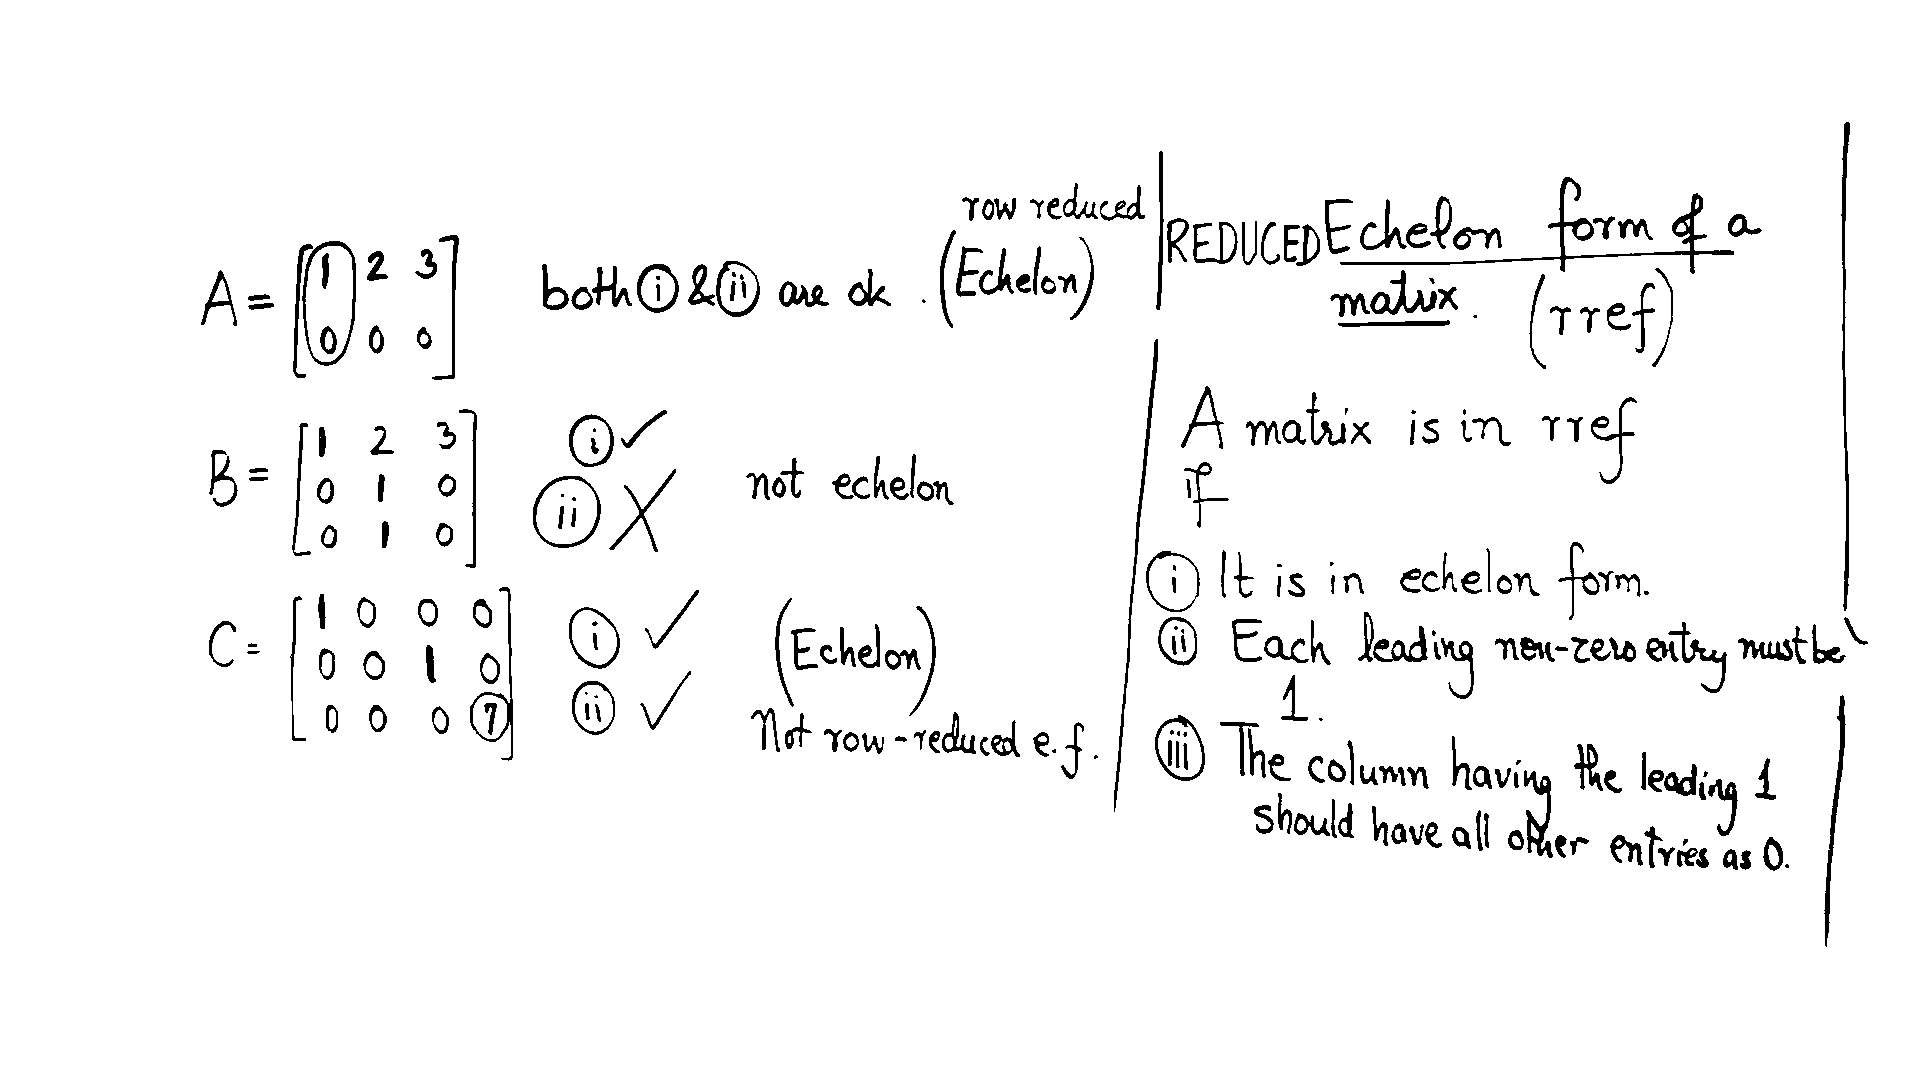 A = [1 2 3
0 0 0] both (i) & (ii) are ok . row reduced (Echelon)
B = [1 2 3
0 1 0
0 1 0] (i) ✓ (ii) ✗ not echelon
C = [1 0 0 0
0 0 1 0
0 0 0 7] (i) ✓ (ii) ✓ (Echelon)
Not row-reduced e.f.
REDUCED Echelon form of a
matrix. (rref)
A matrix is in rref
if
(i) It is in echelon form.
(ii) Each leading non-zero entry must be
1.
(iii) The column having the leading 1
should have all other entries as 0.